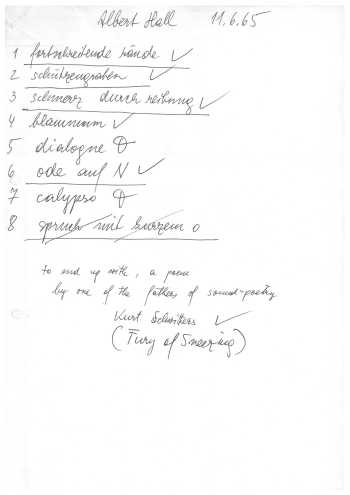 Albert Hall 11.6.65
1 fortschreitende räude ✓
2 schützengraben ✓
3 schmerz durch reibung ✓
4 blaumm ✓
5 dialogue
6 ode auf N ✓
7 calypso
8. spruch mit kurzem o
to end up with, a poem
by one of the fathers of sound-poetry
Kurt Schwitters ✓
(Fury of Sneezing)